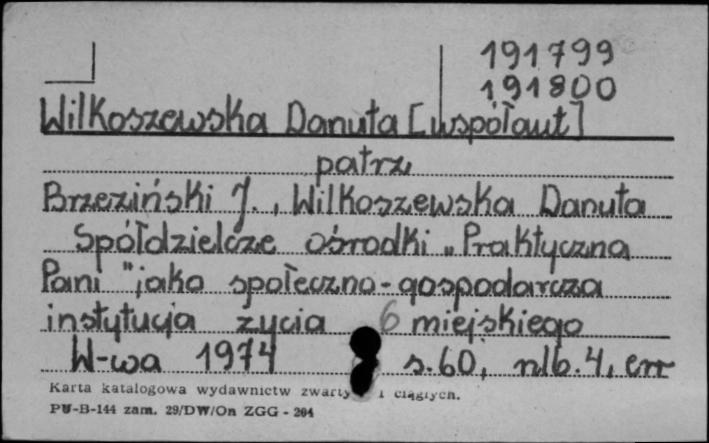 191799
191800
Wilkoszewska Danuta [współaut]
patrz
Brzeziński J., Wilkoszewska Danuta
Spółdzielcze ośrodki „Praktyczna
Pani" jako społeczno-gospodarcza
instytucja życia 6 miejskiego
W-wa 1974 s. 60, nlb. 4, err
Karta katalogowa wydawnictw zwarty i ciągłych.
PU-B-144 zam. 29/DW/On ZGG - 204